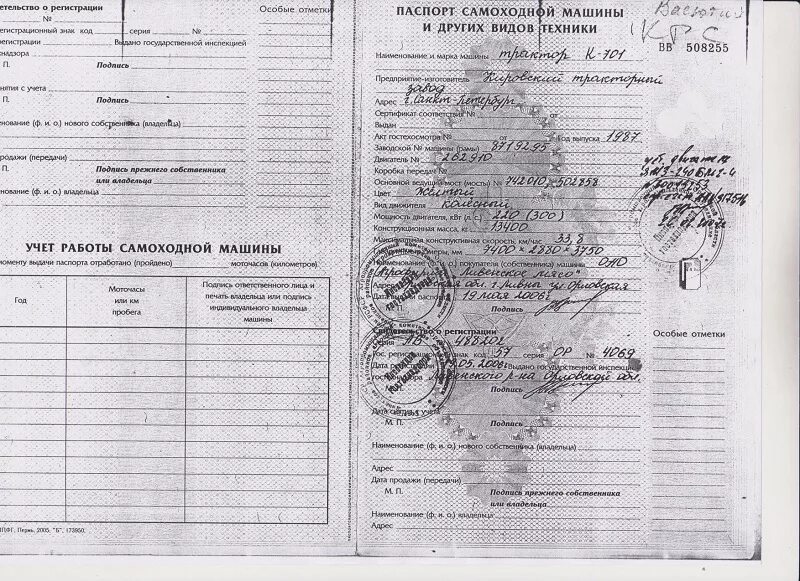 детельство о регистрации
Особые отметки
№
регистрационный знак код серия №
регистрации Выдано государственной инспекцией
хнадзора
П. Подпись
нятия с учета
П. Подпись
нование (ф. и. о.) нового собственника (владельца)
продажи (передачи)
П. Подпись прежнего собственника
или владельца
нование (ф. и. о.) владельца
УЧЕТ РАБОТЫ САМОХОДНОЙ МАШИНЫ
моменту выдачи паспорта отработано (пройдено) моточасов (километров)
Год
Моточасы
или км
пробега
Подпись ответственного лица и
печать владельца или подпись
индивидуального владельца
машины
Пермь, 2005, "Б", 173950.
ПАСПОРТ САМОХОДНОЙ МАШИНЫ
И ДРУГИХ ВИДОВ ТЕХНИКИ
КРС
ВВ 508255
Наименование и марка машины трактор К-701
Предприятие-изготовитель Кировский тракторный
завод
Адрес г. Санкт-Петербург
Сертификат соответствия № от
Выдан
Акт гостехосмотра № от Год выпуска 1987
Заводской № машины (рамы) 8719295
Двигатель № 262910
Коробка передач №
Основной ведущий мост (мосты) № 742010, 502858
Цвет Желтый
Вид движителя колесный
Мощность двигателя, кВт (л. с.) 220 (300)
Конструкционная масса, кг 13400
Максимальная конструктивная скорость, км/час 33,8
Габаритные размеры, мм 7400 × 2880 × 3750
Наименование (ф. и. о.) покупателя (собственника) машины ОАО
"Агрофирма "Ливенское мясо"
Адрес Орловская обл. г. Ливны ул. Орловская
Дата выдачи паспорта 19 мая 2006г
М. П. Подпись
Свидетельство о регистрации
Серия АВ № 488202
Гос. регистрационный знак код 57 серия ОР № 4069
Дата регистрации .05.2006г Выдано государственной инспекцией
гостехнадзора Ливенского р-на Орловской обл.
М. П. Подпись
Дата снятия с учета
М. П. Подпись
Наименование (ф. и. о.) нового собственника (владельца)
Адрес
Дата продажи (передачи)
М. П. Подпись прежнего собственника
или владельца
Наименование (ф. и. о.) владельца
Адрес
уст. двигатель
Особые отметки